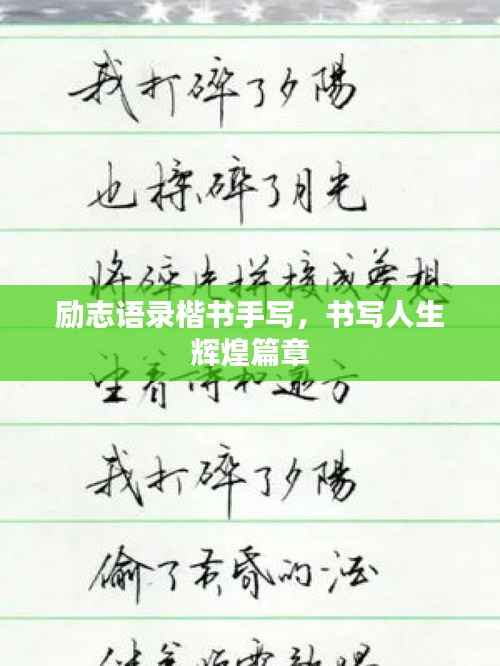 我打碎了夕陽
也揉碎了月光
将碎片拼接成夢想
励志语录楷书手写，书写人生
辉煌篇章
望着诗和遠方
我打碎了夕陽
偷了黄昏的酒